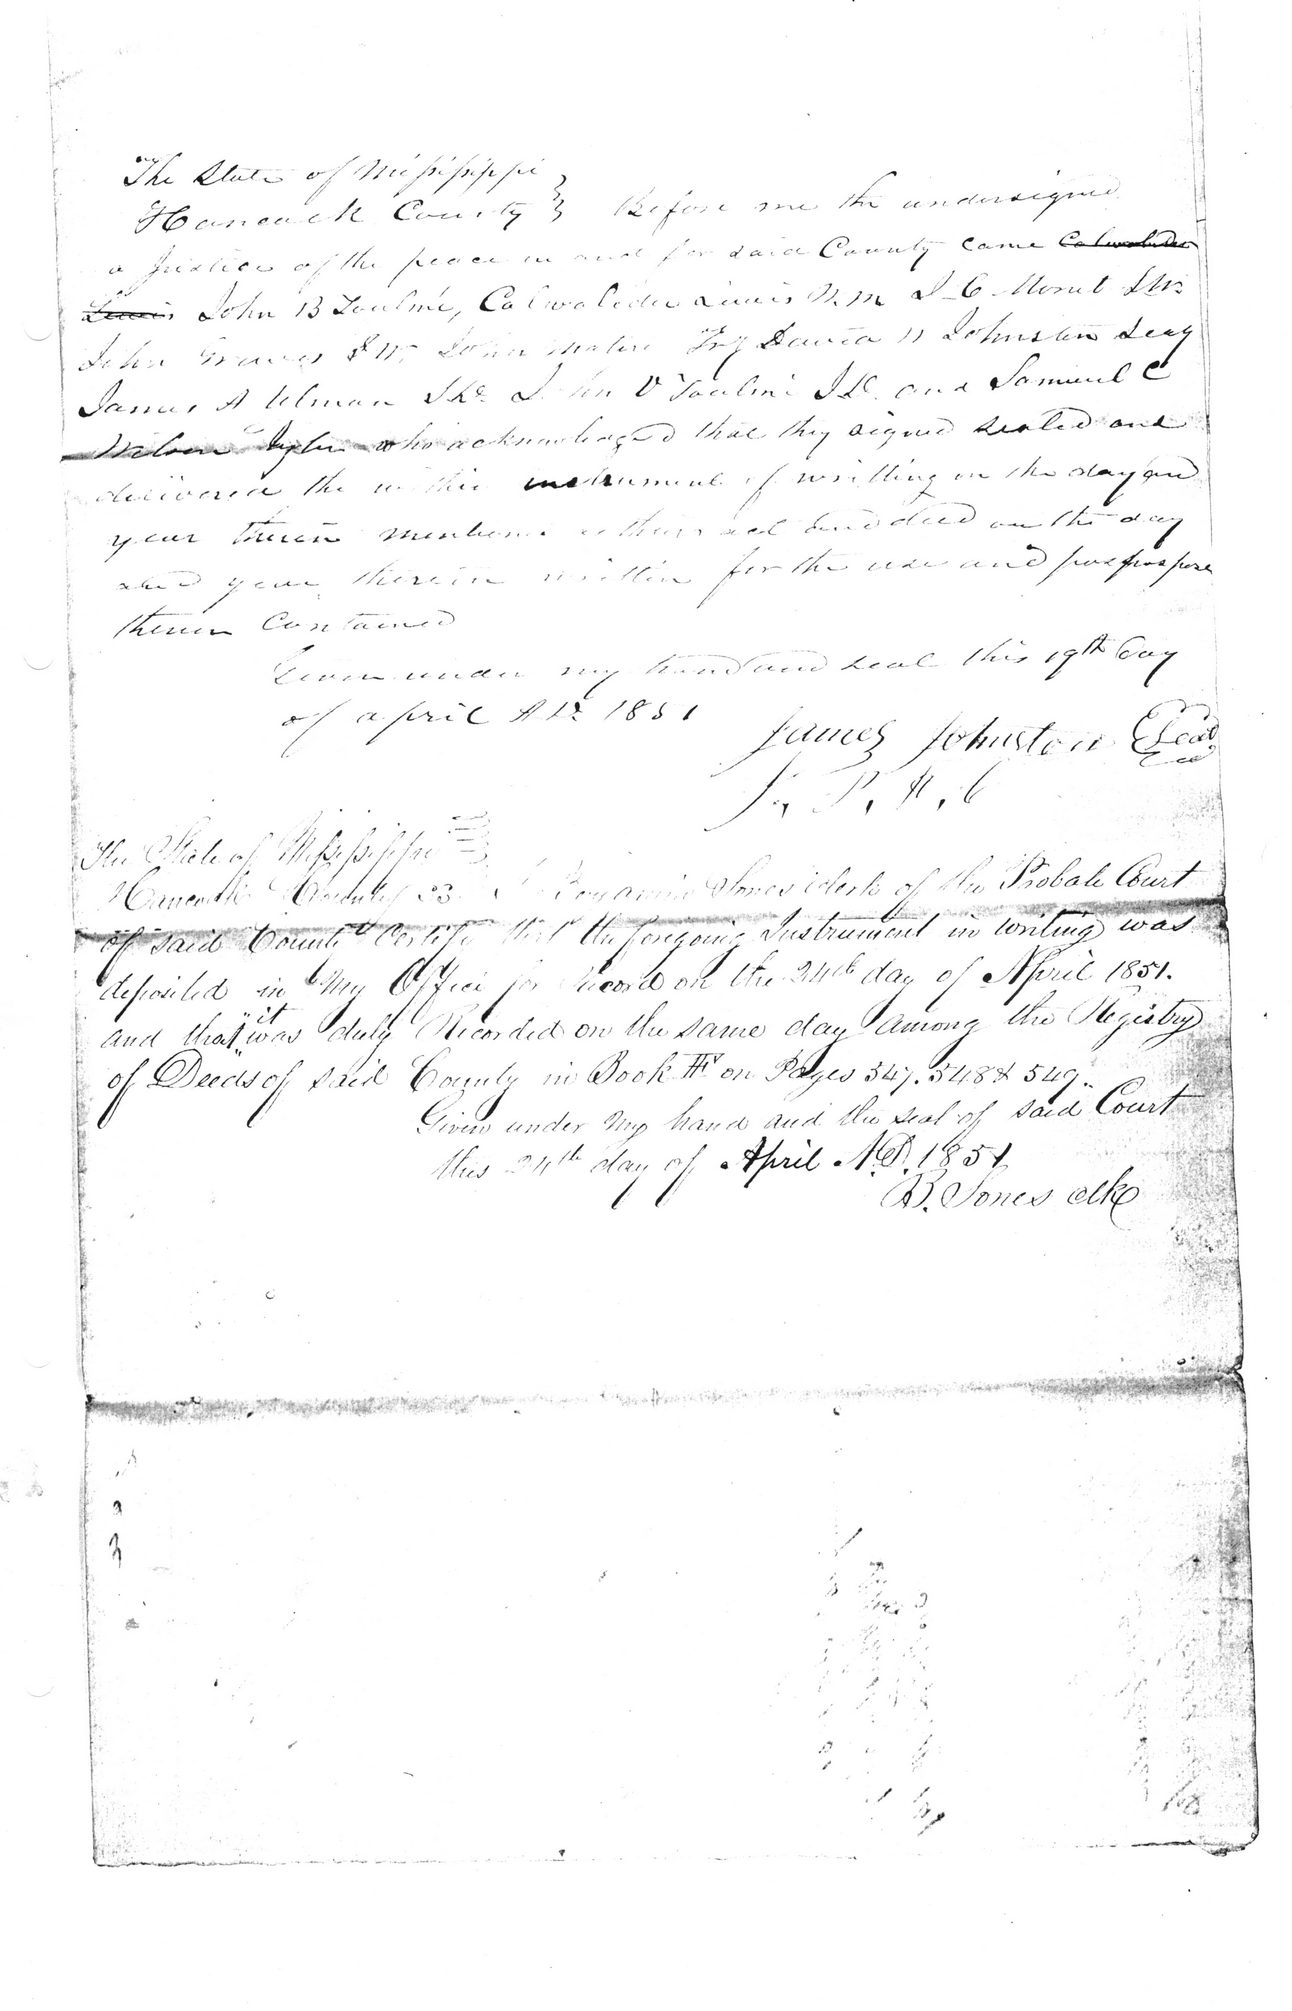 The State of Mississippi
Hancock County } Before me the undersigned
a Justice of the peace in and for said County came Calwalider
Lewis John B Toulme, Calwalider Lewis W M J C Monet S W
John Graves J W John Martin Try David N Johnston Secy
James A Ulman S D John V Toulme J D and Samuel C
Wilson Tyler who acknowledged that they signed sealed and
delivered the within instrument of writting on the day and
year therein mentioned as their act and deed on the day
and year therein written for the use and purpospose
therein Contained
Given under my hand and seal this 19th day
of april A D 1851
James Johnston Seal
J. P. H. C
The State of Mississippi
Hancock County SS I Benjamin Jones clerk of the Probate Court
of said County certify that the foregoing Instrument in writing was
deposited in My Office for Record on the 24th day of April 1851.
it
and that was duly Recorded on the same day among the Registry
of Deeds of said County in Book F on Pages 547. 548 & 549
Given under my hand and the seal of said Court
this 24th day of April A.D. 1851
B. Jones clk